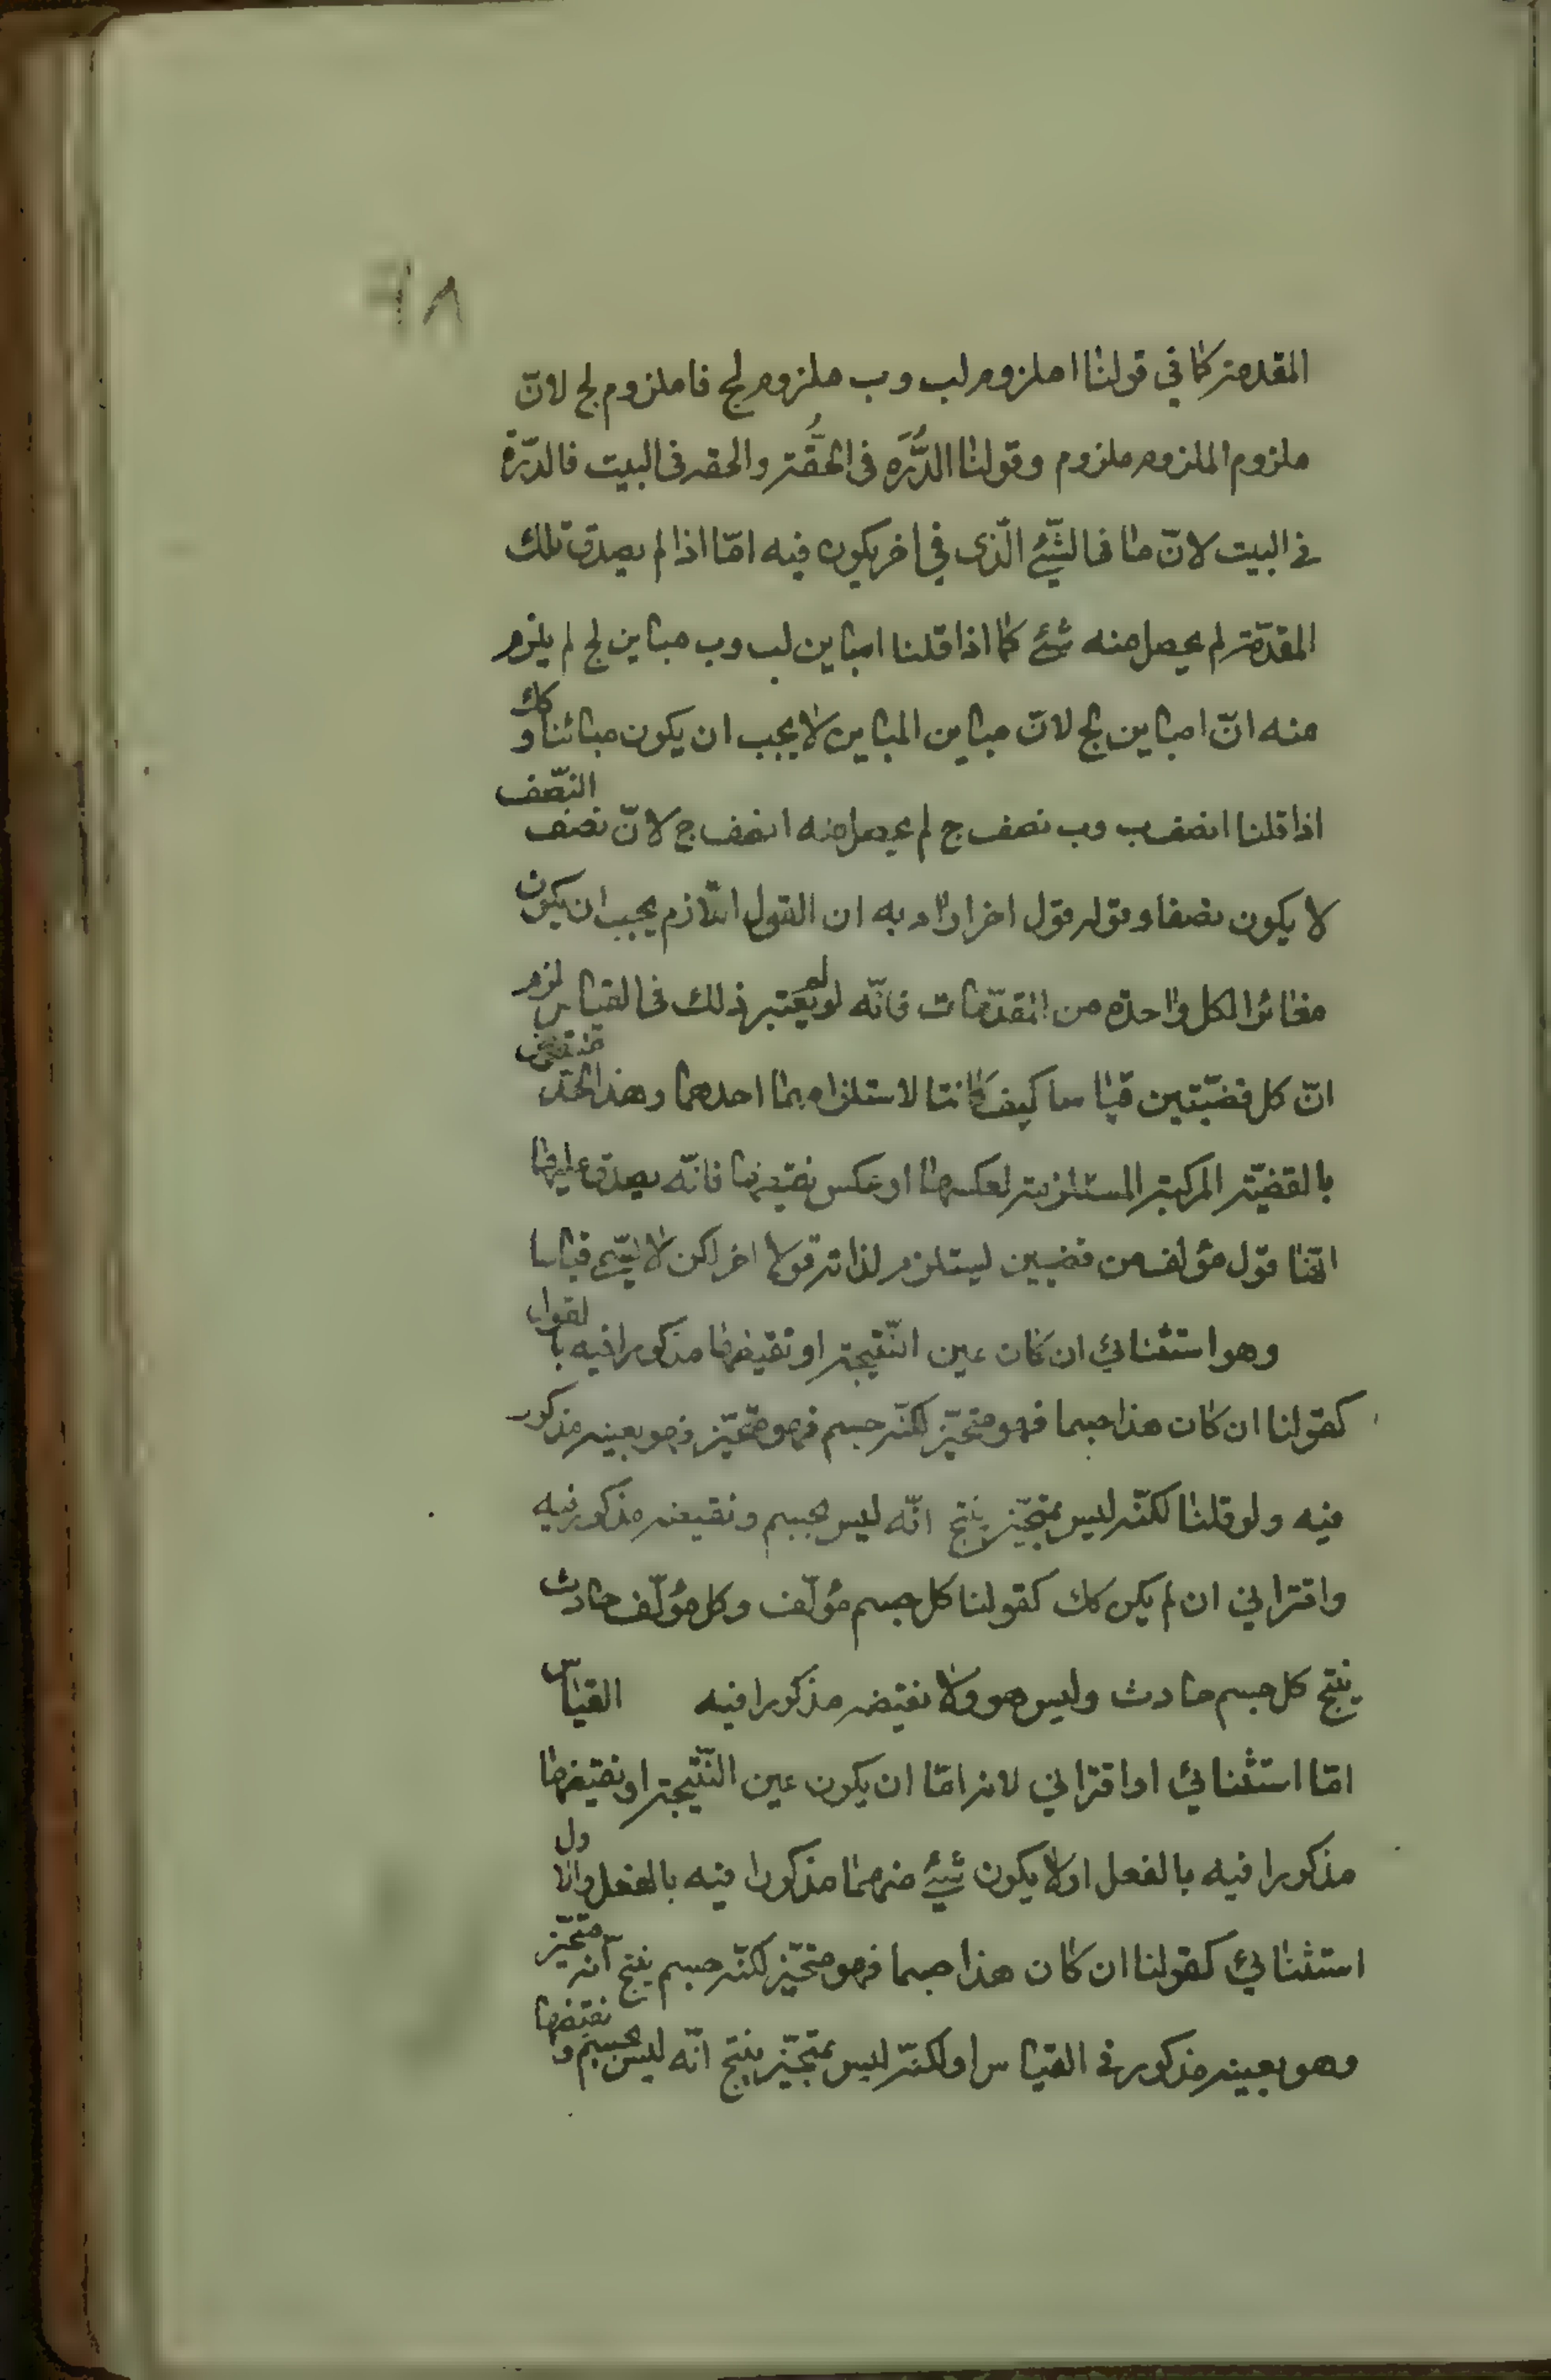 ٦٨
المقدمة كما في قولنا ا ملزوم لب وب ملزوم لج فا ملزوم لج لانّ
ملزوم الملزوم ملزوم وقولنا الدُّرَّه فى الحُقَّة والحقه فى البيت فالدرّة
فى البيت لانّ ما فى الشّئ الّذى في اخر يكون فيه امّا اذا لم يصدق تلك
المقدّمة لم يحصل منه شئ كما اذا قلنا ا مباين لب وب مباين لج لم يلزم
منه انّ ا مباين لج لانّ مباين المباين لا يجب ان يكون مبائنا وكك
اذا قلنا ا نصف ب وب نصف ج لم يحصل منه ا نصف ج لانّ نصف النّصف
لا يكون نصفا وقوله قول اخر اراد به ان القول اللّازم يجب ان يكون
مغائرا لكل واحدة من المقدّمات فانّه لو لم يعتبر ذلك فى القياس لزم
انّ كل قضيّتين قياسا كيف كانتا لاستلزامهما احدهما وهذا الحدّ منتقض
بالقضيّة المركبة المستلزمة لعكسها او عكس نقيضها فانّه يصدق عليها
انّها قول مؤلف من قضيين ليستلزم لذاته قولا اخر لكن لا يسمّى قياسا
وهو استثنائي ان كان عين النّتيجة او نقيضها مذكورا فيه بالقول
كقولنا ان كان هذا جسما فهو متحيّز لكنّه جسم فهو متحيّز فهو بعينه مذكور
فيه ولو قلنا لكنّه ليس بمتحيّز ينتج انّه ليس بجسم ونقيضه مذكور فيه
واقتراني ان لم يكن كك كقولنا كل جسم مؤلّف وكل مؤلّف حادث
ينتج كل جسم حادث وليس هو ولا نقيضه مذكورا فيه القياس
امّا استثنائي او اقتراني لانه امّا ان يكون عين النّتيجة او نقيضها
مذكورا فيه بالفعل او لا يكون شئ منهما مذكورا فيه بالفعل والاول
استثنائي كقولنا ان كان هذا جسما فهو متحيّز لكنّه جسم ينتج انّه متحيّز
وهو بعينه مذكور في القياس او لكنّه ليس بمتحيّز ينتج انّه ليس بجسم ونقيضها